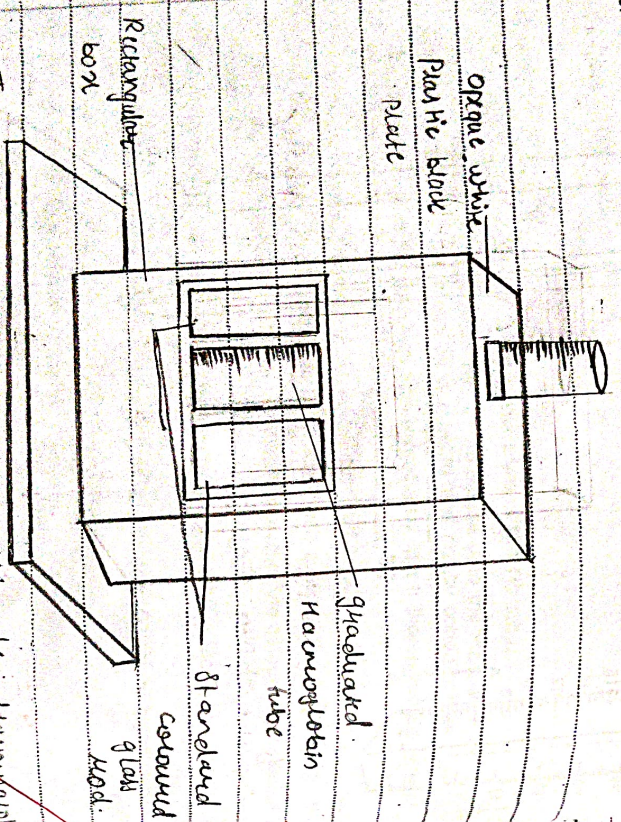 opeque white
Plastic black
Plate
Rectangular
box
graduated.
Haemoglobin
tube
Standard
coloured
glass
rod.